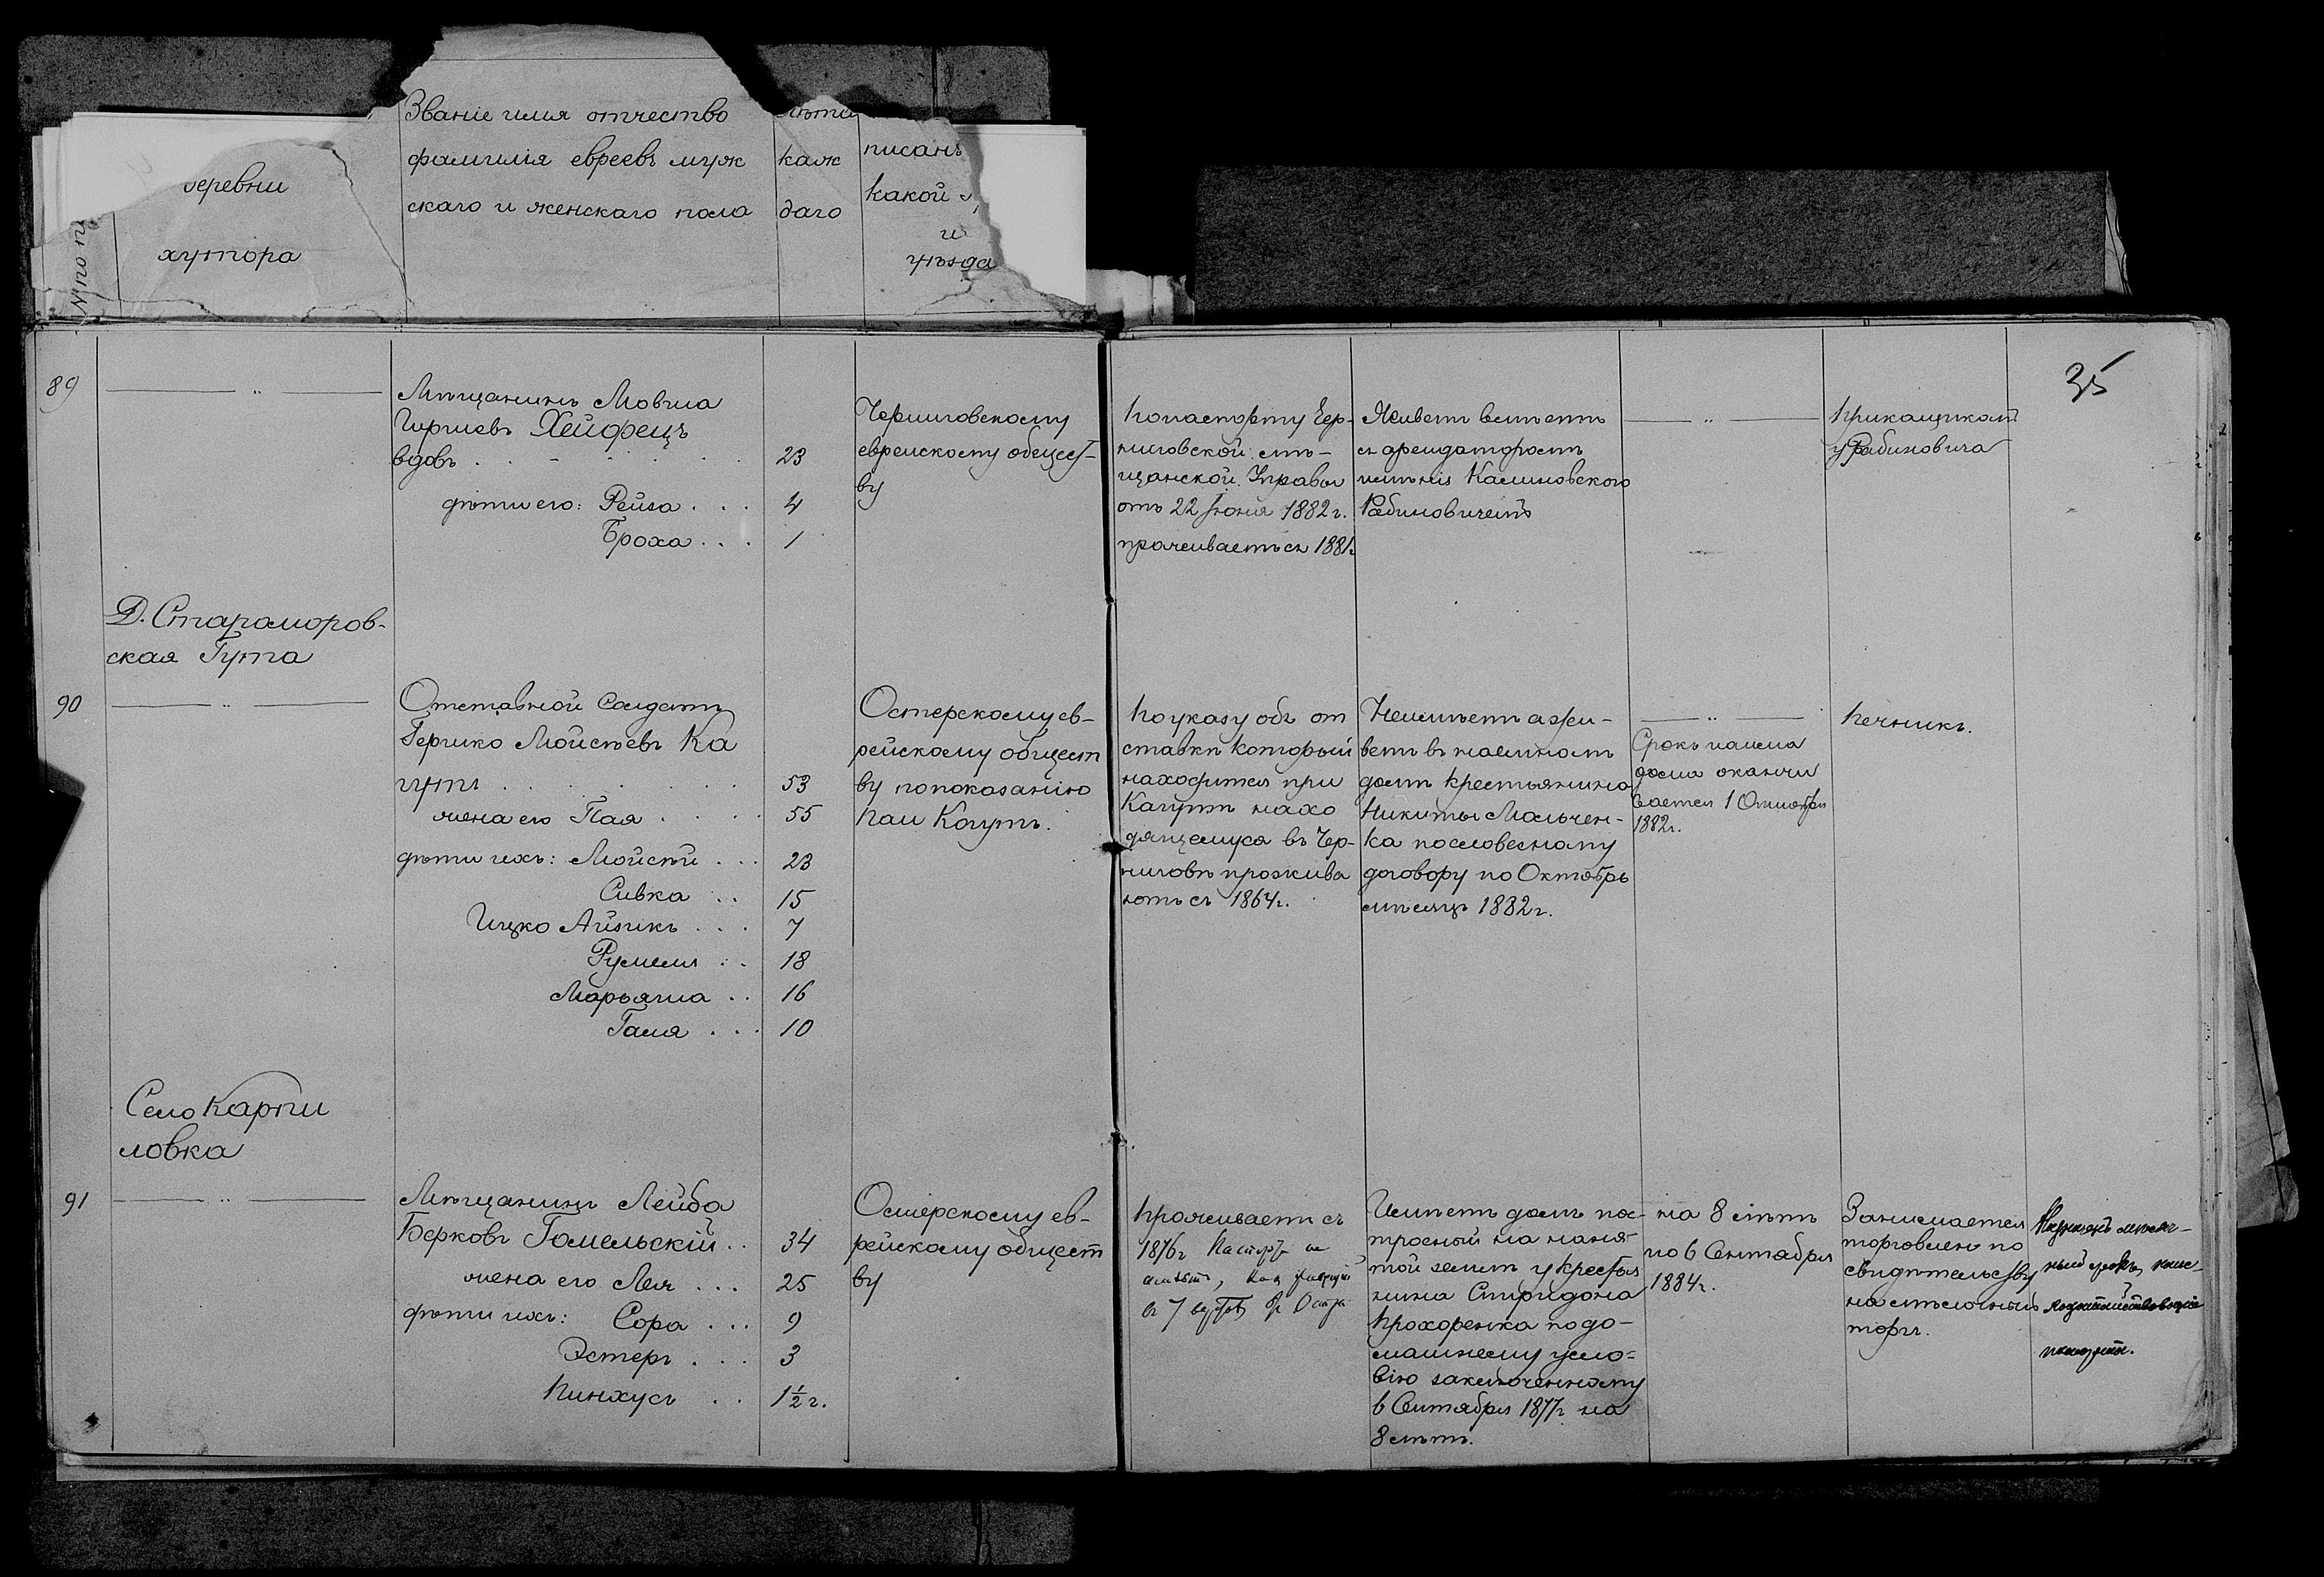 Званіе имя отчество
фамилія евреевъ муж
скаго и женскаго пола
каж
даго
писанъ
какой
и
уѣзда
деревни
хутора
№ по п
35
89
Мѣщанинъ Мовша
Гиршевъ Хейфецъ
вдовъ . . . . . . 23
дѣти его: Рейза . . . 4
Броха . . . 1
Черниговскому
еврейскому общест-
ву
По паспорту Чер-
ниговской мѣ-
щанской Управы
отъ 22 Іюня 1882 г.
проживаетъ съ 1881 г.
Живетъ вмѣстѣ
съ арендаторомъ
имѣнія Калиновского
Рабиновичемъ
Прикащикомъ
у Рабиновича
Д. Стараморов-
ская Гута
90
Отставной Солдатъ
Гершко Мойсѣевъ Ка
гутъ . . . . . . 53
жена его Пая . . . . 55
дѣти ихъ: Мойсѣй . . . 23
Сивка . . 15
Ицко Айзикъ . . . 7
Румеля . . 18
Марьяша . . 16
Галя . . . 10
Остерскому ев-
рейскому общест
ву по показанію
Паи Кагутъ.
По указу объ от
ставкѣ который
находится при
Кагутѣ нахо
дящемуся въ Чер-
ниговѣ прожива
ютъ съ 1864 г.
Неимѣетъ а жи-
ветъ въ наемномъ
домѣ крестьянина
Никиты Мальчен-
ка по словесному
договору по Октябрь
мѣсяцъ 1882 г.
Срокъ найма
дома оканчи
вается 1 Октября
1882 г.
Печникъ.
Село Карпи
ловка
91
Мѣщанинъ Лейба
Берковъ Гомельскій . . 34
жена его Лея . . . 25
дѣти ихъ: Сора . . . 9
Эстеръ . . . 3
Пинхусъ . . 1½ г.
Остерскому ев-
рейскому общест
ву
Проживаетъ съ
1876 г. Паспорта не
имѣетъ,
Имѣетъ домъ по-
строеный на наня-
той землѣ у крестья
нина Спиридона
Прохоренка по до-
машнему усло-
вію заключенному
6 Сентября 1877 г. на
8 лѣтъ.
на 8 лѣтъ
по 6 Сентября
1884 г.
Занимается
торговлею по
свидѣтельству
на мѣлочный
торгъ.